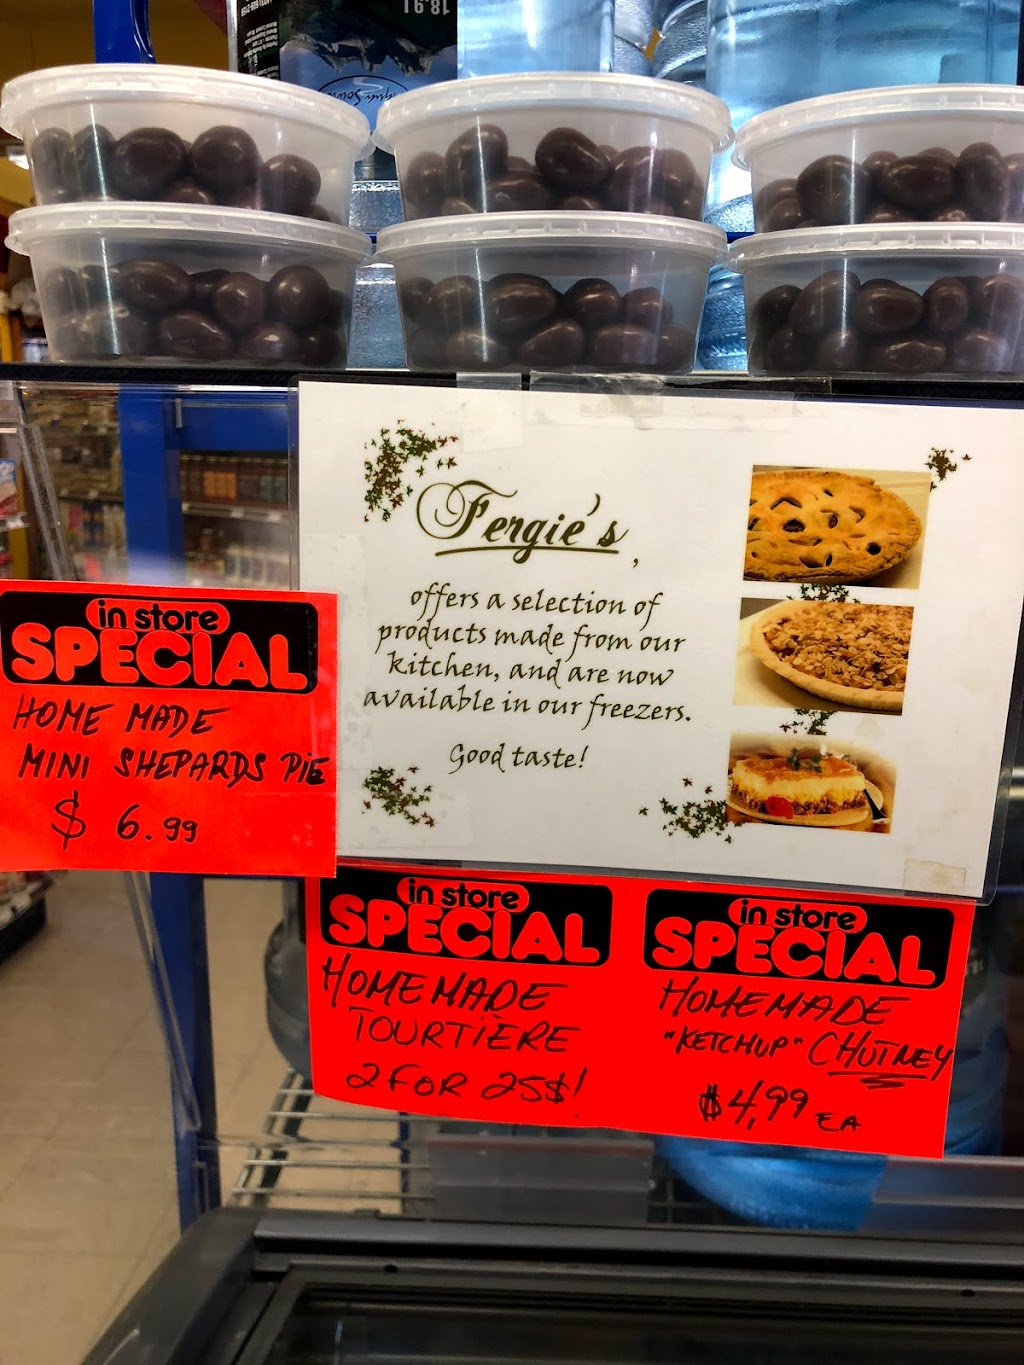 18.9 l
Fergie's,
offers a selection of
products made from our
kitchen, and are now
available in our freezers.
Good taste!
in store
SPECIAL
HOME MADE
MINI SHEPARDS PIE
$ 6.99
in store
SPECIAL
HOMEMADE
TOURTIÈRE
2 FOR 25$!
in store
SPECIAL
HOMEMADE
"KETCHUP" CHUTNEY
$4,99 EA